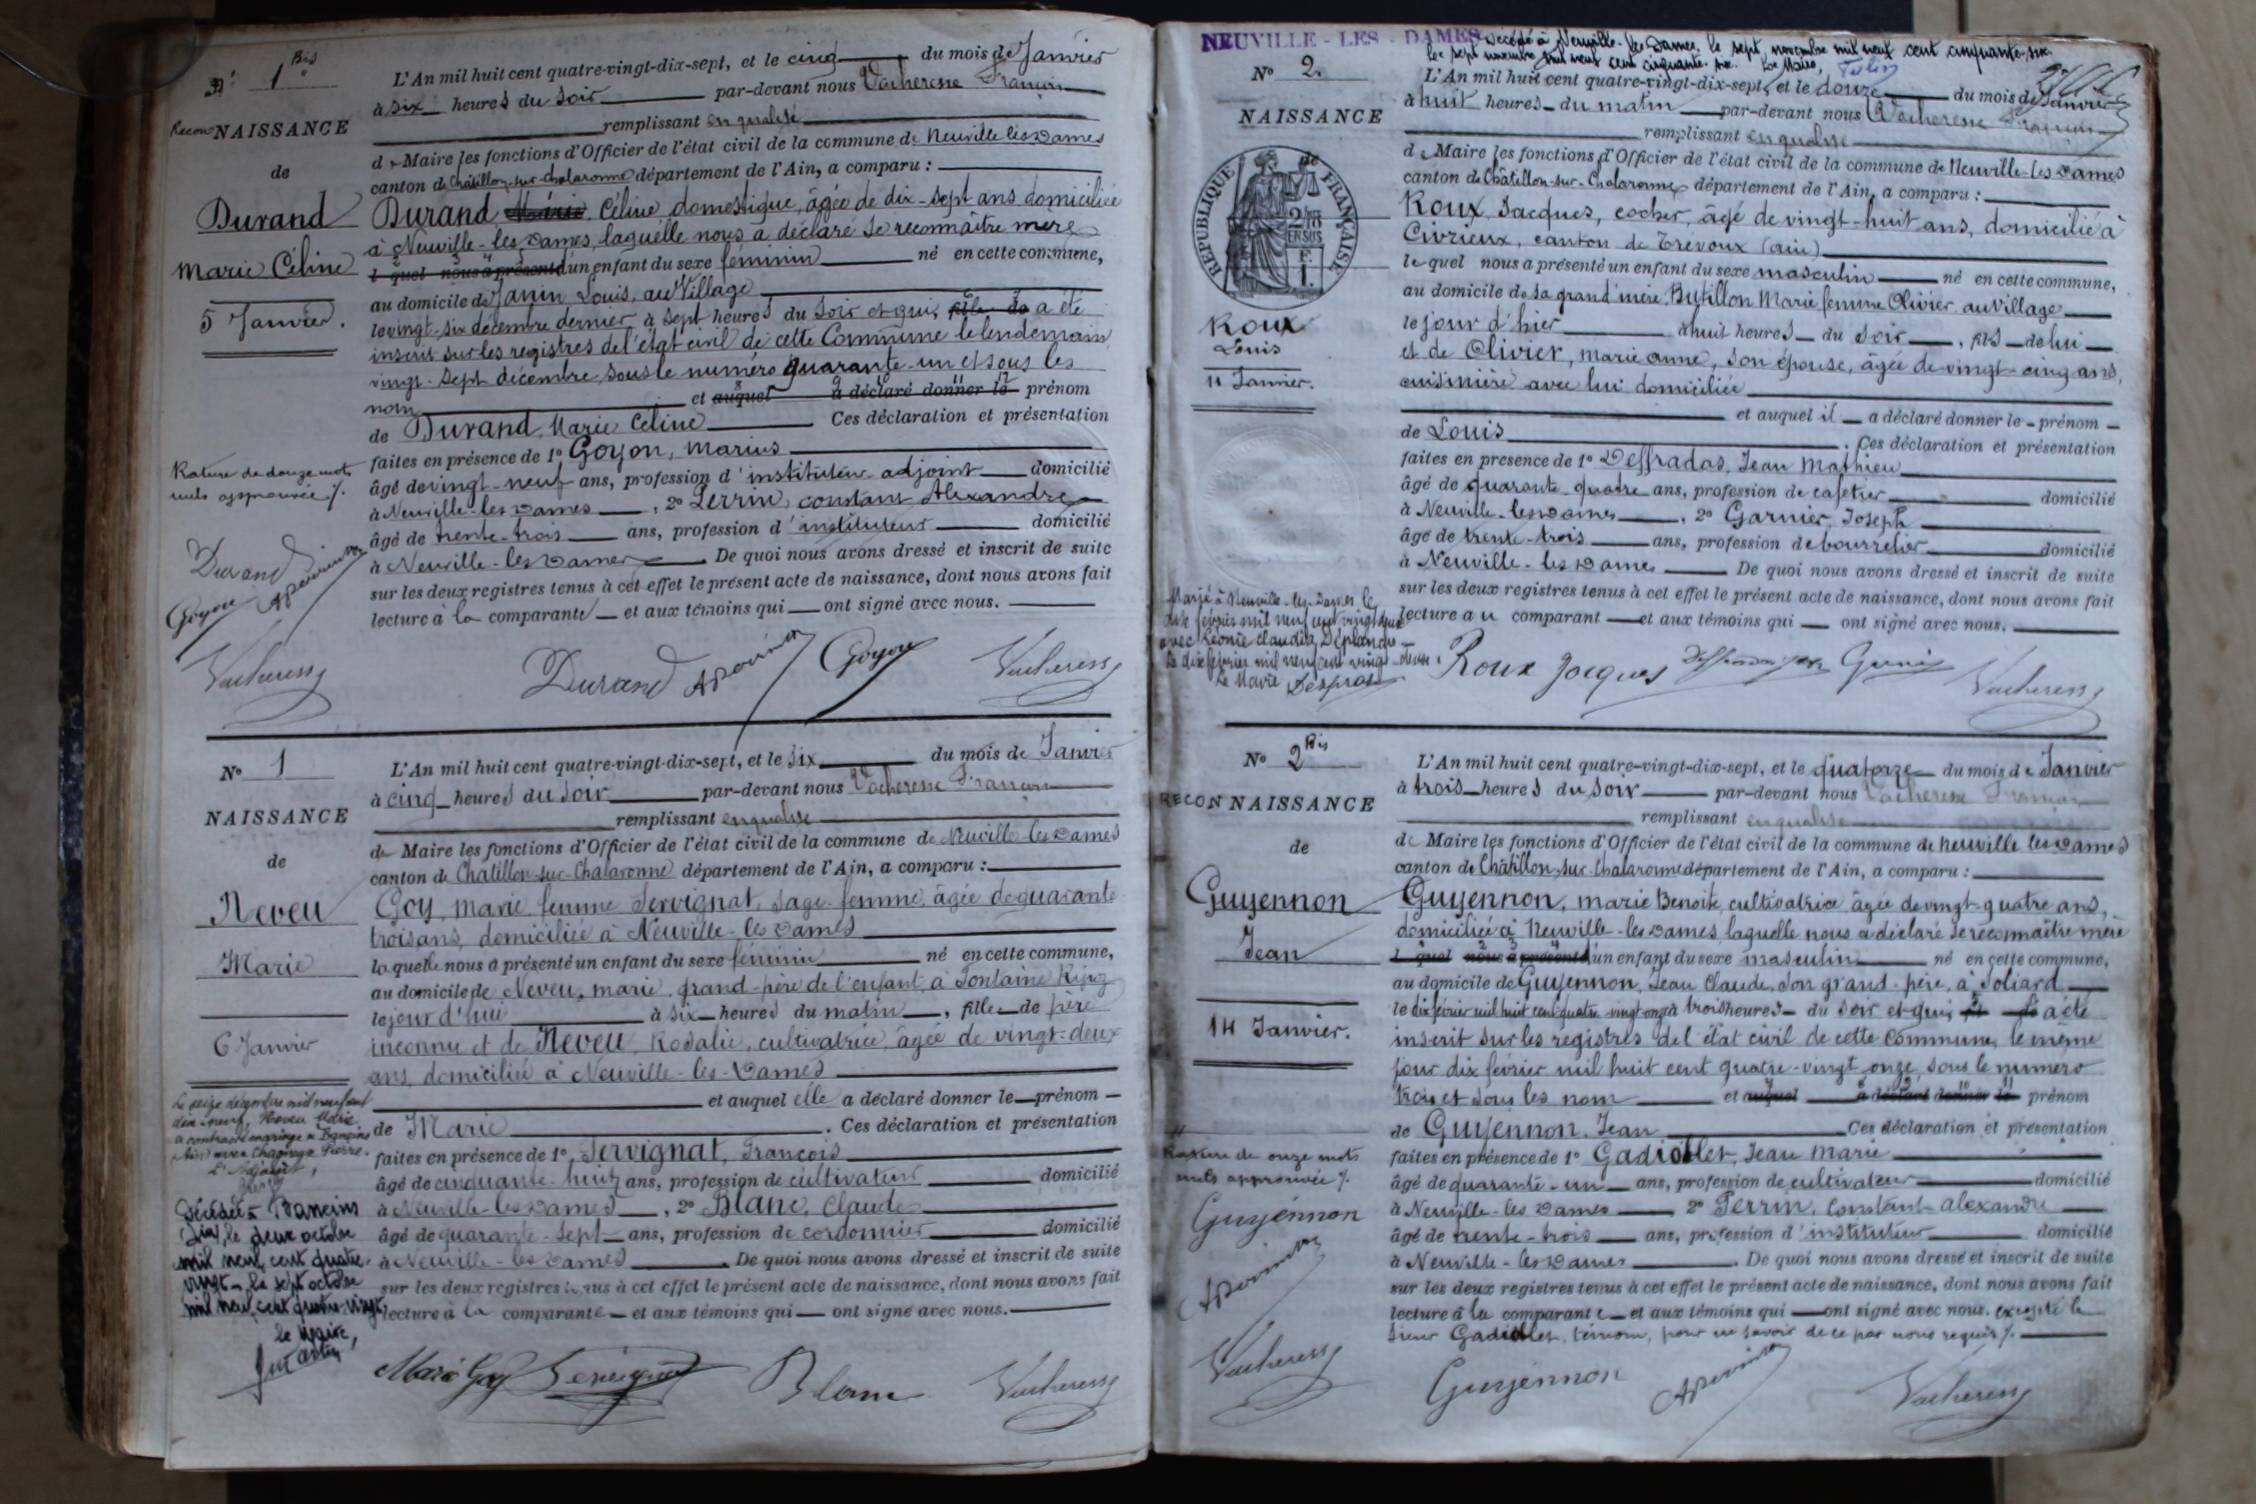 N° 1 Bis
Recon NAISSANCE
de
Durand
Marie Céline
5 Janvier.
Rature de douze mots
nuls approuvée ./.
Durand
APerrin
Goyon
Vacheresse
L'An mil huit cent quatre-vingt-dix-sept, et le cinq du mois de Janvier
à six heures du soir par-devant nous Vacheresse François
remplissant en qualité
de Maire les fonctions d'Officier de l'état civil de la commune de Neuville-les-Dames
canton de Châtillon-sur-Chalaronne département de l'Ain, a comparu :
Durand Marie Céline, domestique, âgée de dix-sept ans domiciliée
à Neuville-les-Dames, laquelle nous a déclaré se reconnaître mère
l quel nous a présenté d'un enfant du sexe féminin né en cette commune,
au domicile de Janin Louis, au Village
le vingt-six décembre dernier à sept heures du soir et qui, fille de a été
inscrit sur les registres de l'état civil de cette Commune le lendemain
vingt-sept décembre sous le numéro quarante-un et sous les
nom et auquel a déclaré donner le prénom
de Durand, Marie Céline Ces déclaration et présentation
faites en présence de 1° Goyon, Marius
âgé de vingt-neuf ans, profession d'instituteur adjoint domicilié
à Neuville-les-Dames, 2° Perrin, constant Alexandre
âgé de trente-trois ans, profession d'instituteur domicilié
à Neuville-les-Dames. De quoi nous avons dressé et inscrit de suite
sur les deux registres tenus à cet effet le présent acte de naissance, dont nous avons fait
lecture à la comparante et aux témoins qui ont signé avec nous.
Durand APerrin Goyon Vacheresse
N° 1
NAISSANCE
de
Neveu
Marie
6 Janvier
Le seize décembre mil neuf cent
dix neuf, Neveu Marie
a contracté mariage à Baneins
(Ain) avec Chagneux Pierre.
L'Adjoint,
Décédée à Baneins
(Ain) le deux octobre
mil neuf cent quatre-
vingt - le sept octobre
mil neuf cent quatre-vingt.
le Maire,
L'An mil huit cent quatre-vingt-dix-sept, et le six du mois de Janvier
à cinq heures du soir par-devant nous Vacheresse François
remplissant en qualité
de Maire les fonctions d'Officier de l'état civil de la commune de Neuville-les-Dames
canton de Châtillon-sur-Chalaronne département de l'Ain, a comparu :
Goy, marie femme Servignat, sage-femme, âgée de quarante
trois ans, domiciliée à Neuville-les-Dames
laquelle nous a présenté un enfant du sexe féminin né en cette commune,
au domicile de Neveu, marie, grand-père de l'enfant, à Fontaine
le jour d'hui à six heures du matin, fille de père
inconnu et de Neveu, Rosalie, cultivatrice, âgée de vingt-deux
ans, domiciliée à Neuville-les-Dames
et auquel elle a déclaré donner le prénom
de Marie. Ces déclaration et présentation
faites en présence de 1° Servignat, François
âgé de cinquante-huit ans, profession de cultivateur domicilié
à Neuville-les-Dames, 2° Blanc, Claude
âgé de quarante-sept ans, profession de cordonnier domicilié
à Neuville-les-Dames. De quoi nous avons dressé et inscrit de suite
sur les deux registres tenus à cet effet le présent acte de naissance, dont nous avons fait
lecture à la comparante et aux témoins qui ont signé avec nous.
Marie Goy Servignat Blanc Vacheresse
NEUVILLE-LES-DAMES
Décédé à Neuville-les-Dames, le sept novembre mil neuf cent cinquante-six
Le sept novembre mil neuf cent cinquante-six. Le Maire,
N° 2.
NAISSANCE
de
REPUBLIQUE FRANÇAISE
Roux
Louis
11 Janvier.
Marié à Neuville-les-Dames le
dix février mil neuf cent vingt deux
avec Léonie Claudia Déplanche
Le dix février mil neuf cent vingt-deux.
Le Maire
L'An mil huit cent quatre-vingt-dix-sept, et le douze du mois de Janvier
à huit heures du matin par-devant nous Vacheresse François
remplissant en qualité
de Maire les fonctions d'Officier de l'état civil de la commune de Neuville-les-Dames
canton de Châtillon-sur-Chalaronne département de l'Ain, a comparu :
Roux, Jacques, cocher, âgé de vingt-huit ans, domicilié à
Civrieux, canton de Trévoux (ain)
lequel nous a présenté un enfant du sexe masculin né en cette commune,
au domicile de sa grand'mère, Butillon Marie femme Olivier au village
le jour d'hier à huit heures du soir, fils de lui
et de Olivier, marie anne, son épouse, âgée de vingt-cinq ans,
cuisinière avec lui domiciliée
et auquel il a déclaré donner le prénom
de Louis. Ces déclaration et présentation
faites en présence de 1° Deffradas, Jean Mathieu
âgé de quarante quatre ans, profession de cafetier domicilié
à Neuville-les-Dames, 2° Garnier, Joseph
âgé de trente-trois ans, profession de bourrelier domicilié
à Neuville-les-Dames De quoi nous avons dressé et inscrit de suite
sur les deux registres tenus à cet effet le présent acte de naissance, dont nous avons fait
lecture au comparant et aux témoins qui ont signé avec nous.
Roux Jacques Vacheresse
N° 2 Bis
RECONNAISSANCE
de
Guyennon
Jean
14 Janvier.
Rature de onze mots
nuls approuvée ./.
Guyennon
APerrin
Vacheresse
L'An mil huit cent quatre-vingt-dix-sept, et le quatorze du mois de Janvier
à trois heures du soir par-devant nous Vacheresse François
remplissant en qualité
de Maire les fonctions d'Officier de l'état civil de la commune de Neuville les Dames
canton de Châtillon-sur-Chalaronne département de l'Ain, a comparu :
Guyennon, marie Benoite, cultivatrice âgée de vingt-quatre ans,
domiciliée à Neuville-les-Dames, laquelle nous a déclaré se reconnaître mère
l quel nous a présenté d'un enfant du sexe masculin né en cette commune,
au domicile de Guyennon, Jean Claude, son grand-père, à Soliard
le dix février mil huit cent quatre vingt-onze à trois heures du soir et qui, a été
inscrit sur les registres de l'état civil de cette Commune, le même
jour dix février mil huit cent quatre-vingt onze, sous le numéro
trois et sous les nom et auquel a déclaré donner le prénom
de Guyennon, Jean Ces déclaration et présentation
faites en présence de 1° Gadiollet, Jean Marie
âgé de quarante-un ans, profession de cultivateur domicilié
à Neuville-les Dames 2° Perrin, Constant alexandre
âgé de trente-trois ans, profession d'instituteur domicilié
à Neuville-les-Dames. De quoi nous avons dressé et inscrit de suite
sur les deux registres tenus à cet effet le présent acte de naissance, dont nous avons fait
lecture à la comparante et aux témoins qui ont signé avec nous. excepté le
sieur Gadiollet, témoin, pour ne savoir de ce par nous requis ./.
Guyennon APerrin Vacheresse